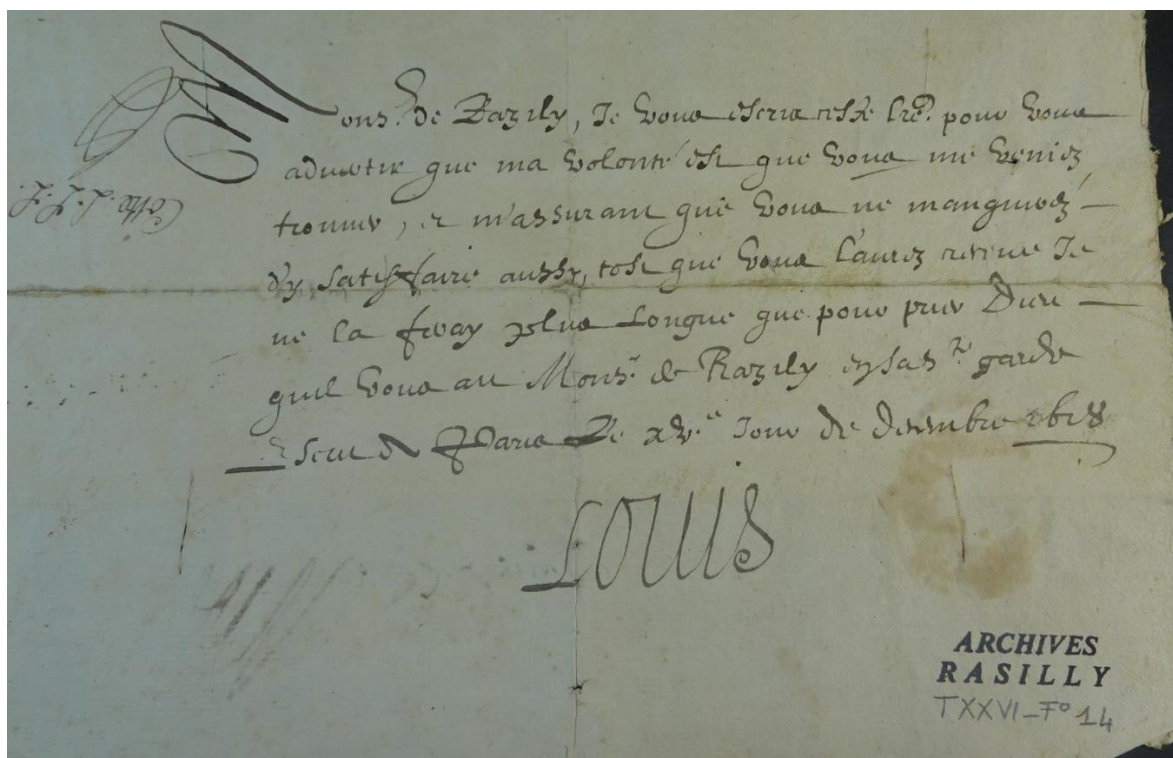 Mons.r de Razily, Je vous escris ceste lre. pour vous
advertir que ma volonté est que vous me veniez
trouver, et m'assurant que vous ne manquerez
d'y satisfaire aussy tost que vous l'aurez receue Je
ne la feray plus longue que pour prier Dieu
quil vous ait Mons.r de Razily en sa s.te garde
Escrit à Paris le xv.e Jour de decembre 1618
Louis
Cotte J. J. J.
ARCHIVES
RASILLY
TXXVI_Fº 14